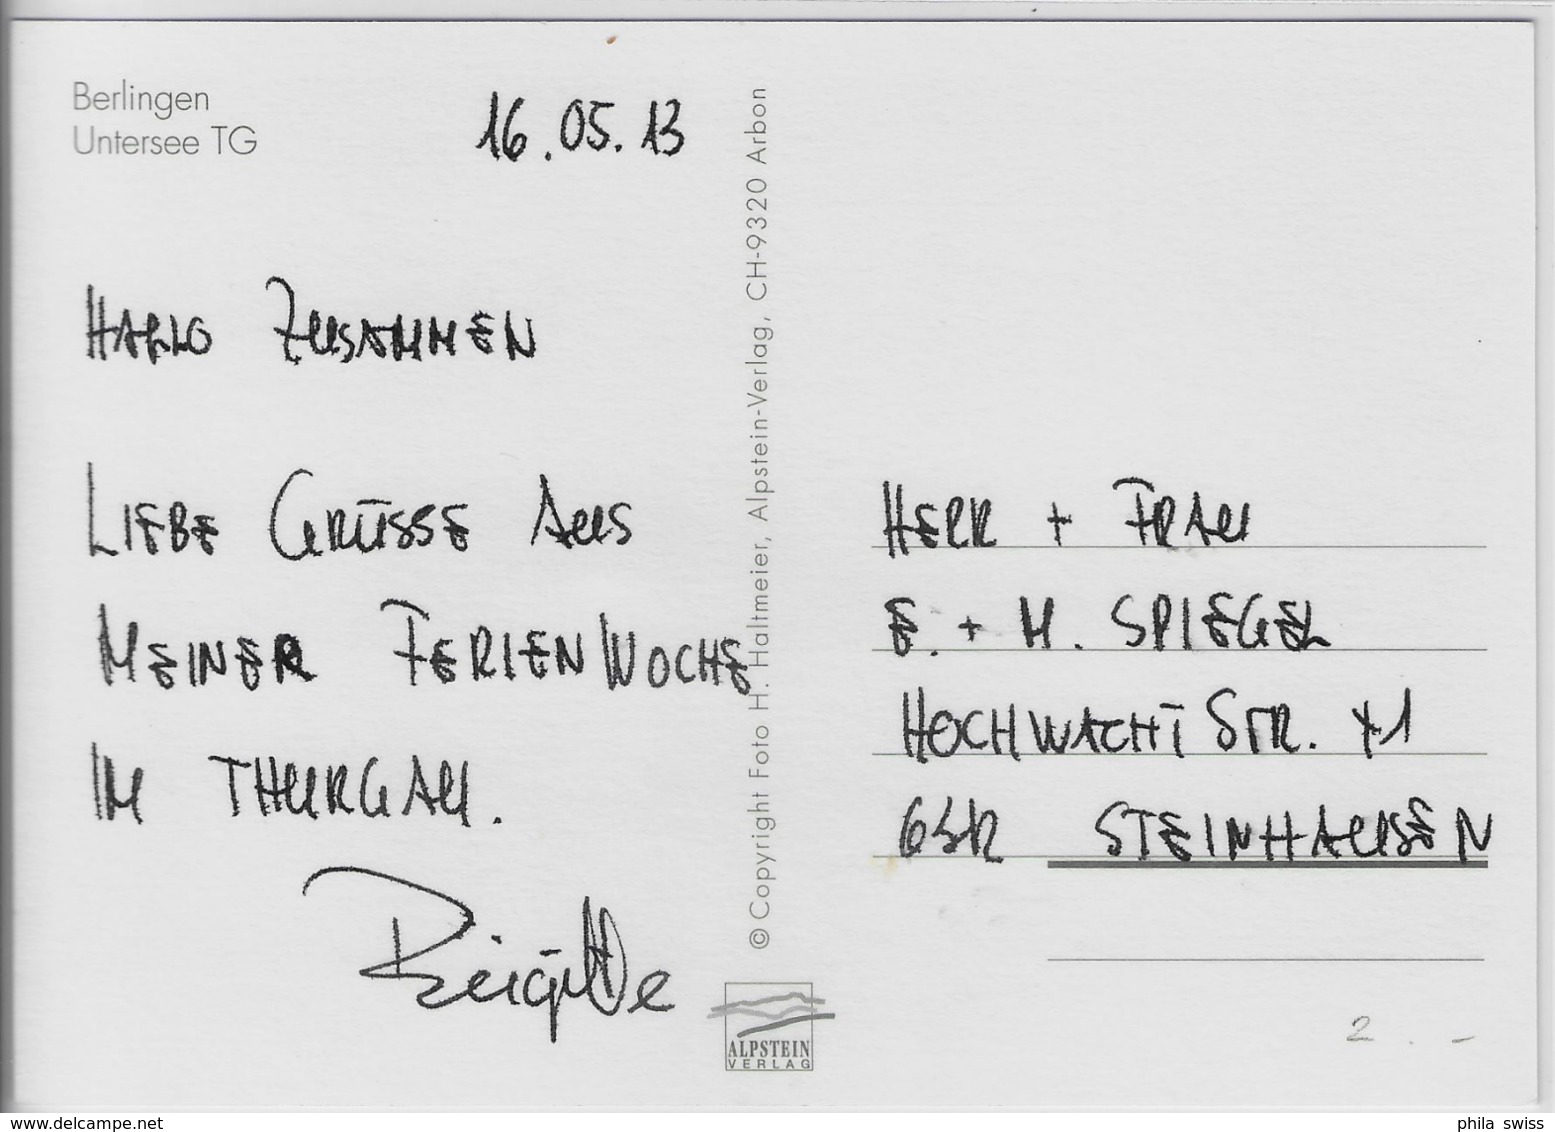 Berlingen
Untersee TG
16.05.13
HALLO ZUSAMMEN
LIEBE GRÜSSE AUS
MEINER FERIENWOCHE
IM THURGAU.
Brigitte
© Copyright Foto H. Haltmeier, Alpstein-Verlag, CH-9320 Arbon
ALPSTEIN
VERLAG
HERR + FRAU
E. + M. SPIEGEL
HOCHWACHTSTR.
STEINHAUSEN
2.-
www.delcampe.net
phila swiss